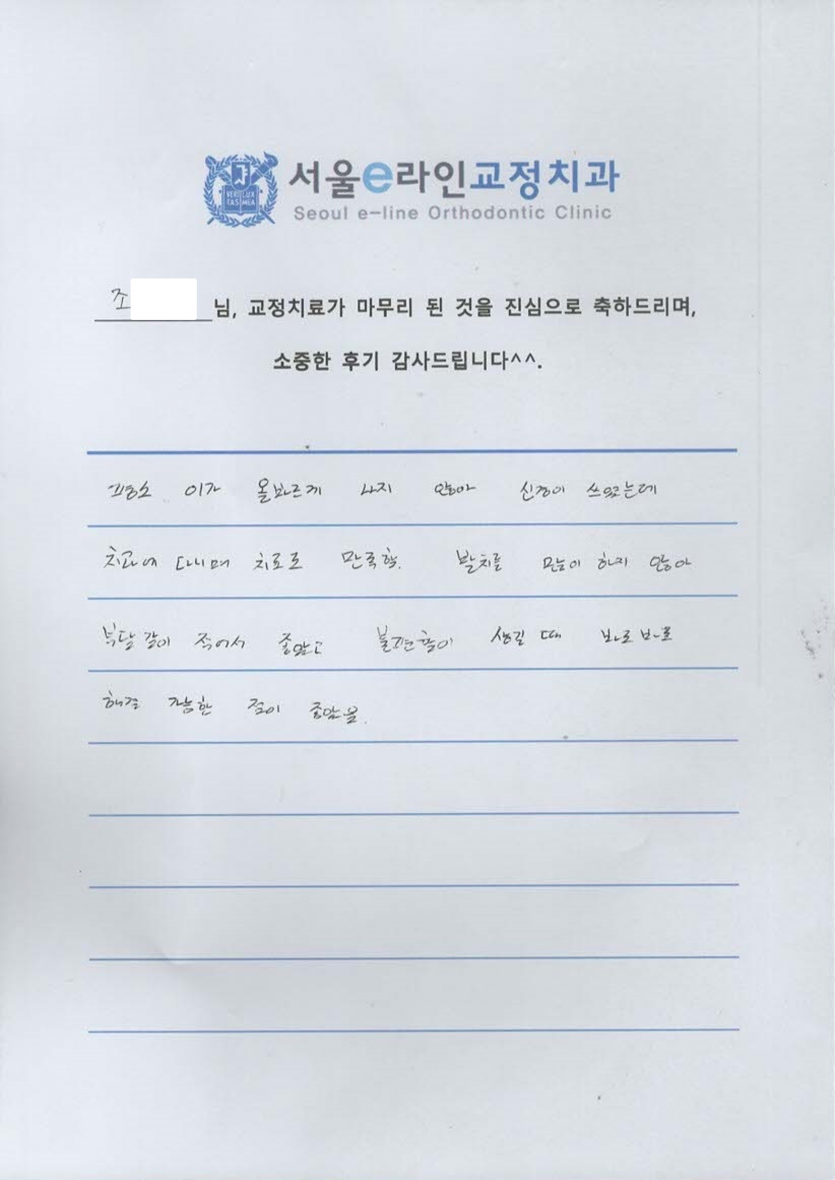 VERI LUX
TAS MEA
서울e라인교정치과
Seoul e-line Orthodontic Clinic
조 님, 교정치료가 마무리 된 것을 진심으로 축하드리며,
소중한 후기 감사드립니다^^.
평소 이가 올바르게 나지 않아 신경이 쓰였는데
치과에 다니며 치료로 만족함. 발치를 많이 하지 않아
부담감이 적어서 좋았고 불편함이 생길 때 바로바로
해결 가능한 점이 좋았음.